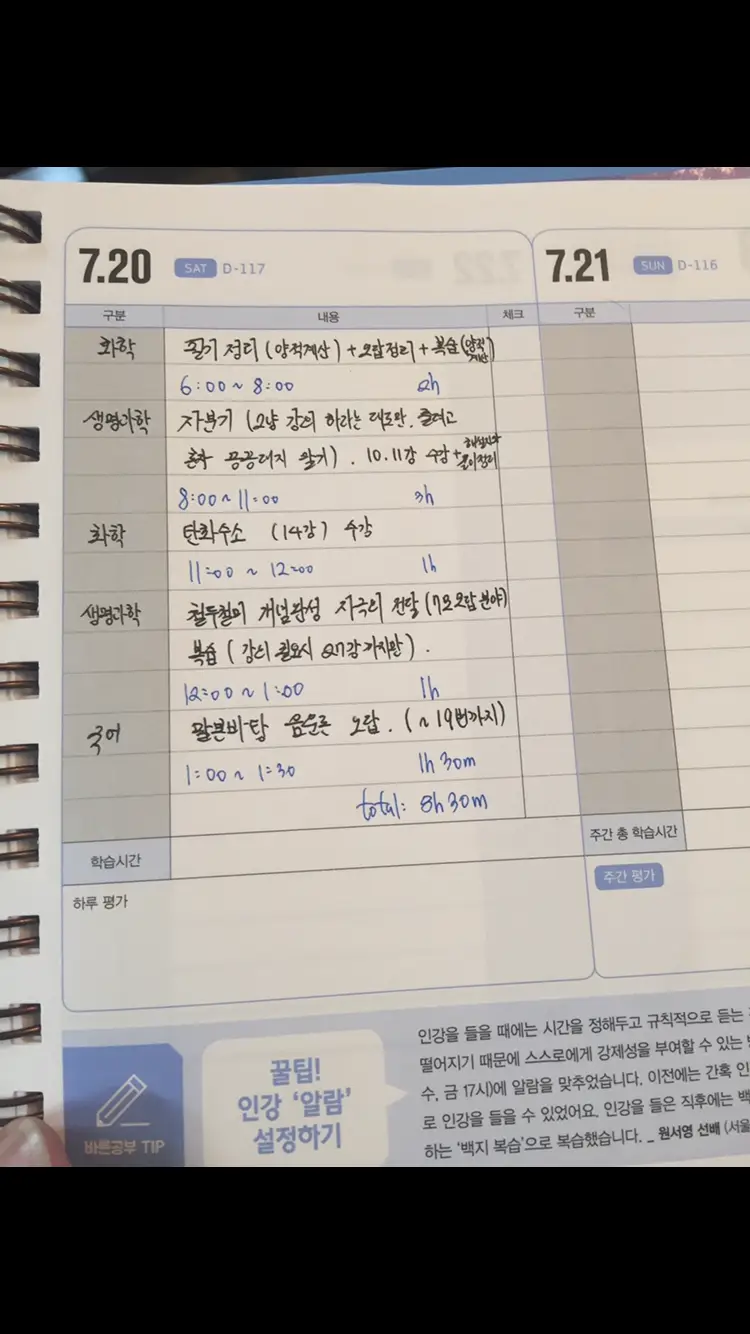 7.20 SAT D-117
7.21 SUN D-116
구분 내용 체크
구분
화학 필기 정리 (양적계산) + 오답정리 + 복습 (양적계산)
6:00 ~ 8:00 2h
생명과학 자분기 (그냥 강의 하라는 대로만.
혼자 끙끙대지 말기). 10.11강 수강 +
8:00 ~ 11:00 3h
화학 탄화수소 (14강) 수강
11:00 ~ 12:00 1h
생명과학 철두철미 개념완성 자극의 전달 (7모 오답 분야)
복습 (강의 필요시 27강까지만).
12:00 ~ 1:00 1h
국어 팔분바탕 음운론 오답. (~19번까지)
1:00 ~ 1:30 1h 30m
total: 8h 30m
학습시간
주간 총 학습시간
하루 평가
주간 평가
바른공부 TIP
꿀팁!
인강 '알람'
설정하기
인강을 들을 때에는 시간을 정해두고 규칙적으로 듣는
떨어지기 때문에 스스로에게 강제성을 부여할 수 있는
수, 금 17시)에 알람을 맞추었습니다. 이전에는 간혹 인
로 인강을 들을 수 있었어요. 인강을 들은 직후에는 백
하는 '백지 복습'으로 복습했습니다. _ 원서영 선배 (서울